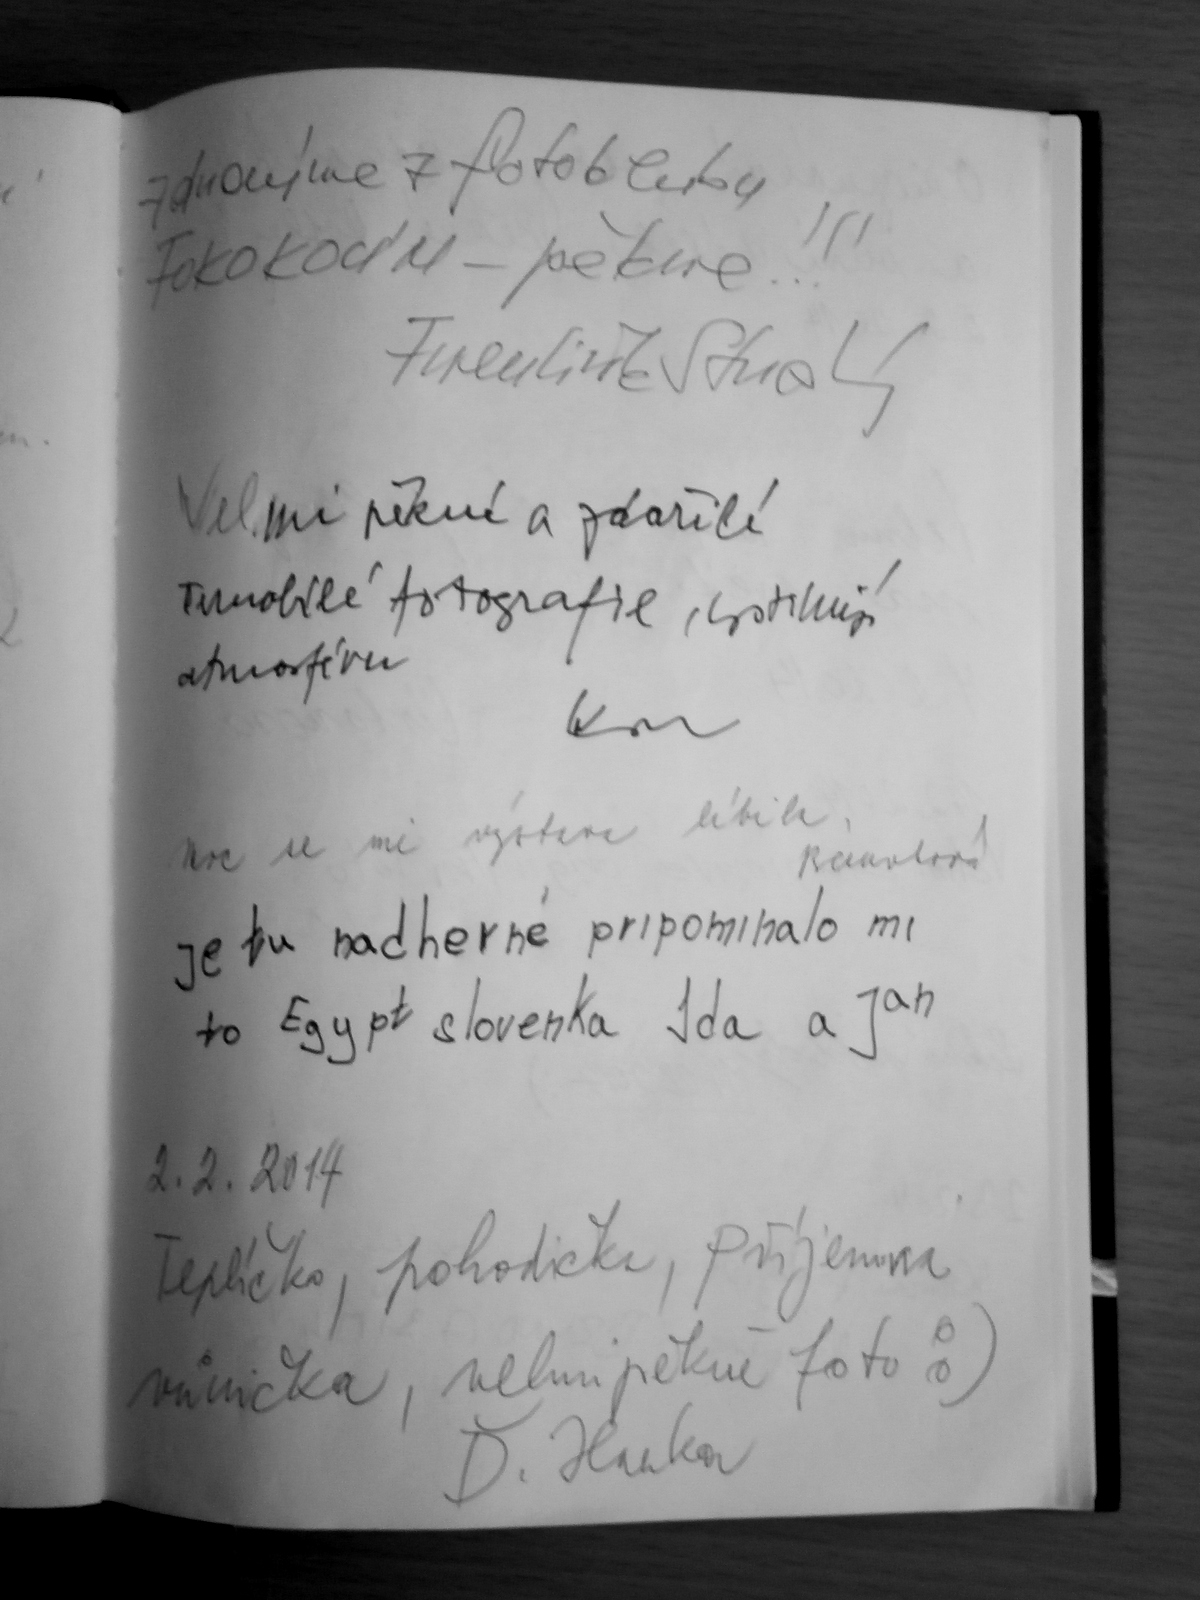 zdravíme z fotoklubu
Fokokodu – pěkne...!!!
Velmi pěkné a zdařilé
černobílé fotografie, vystihují
atmosféru
moc se mi výstava líbila.
je tu nadherné pripominalo mi
to Egypt slovenka Ida a Jan
2.2.2014
Teplíčko, pohodička, příjemná
vůnička, velmi pěkné foto :)
D. Hankov